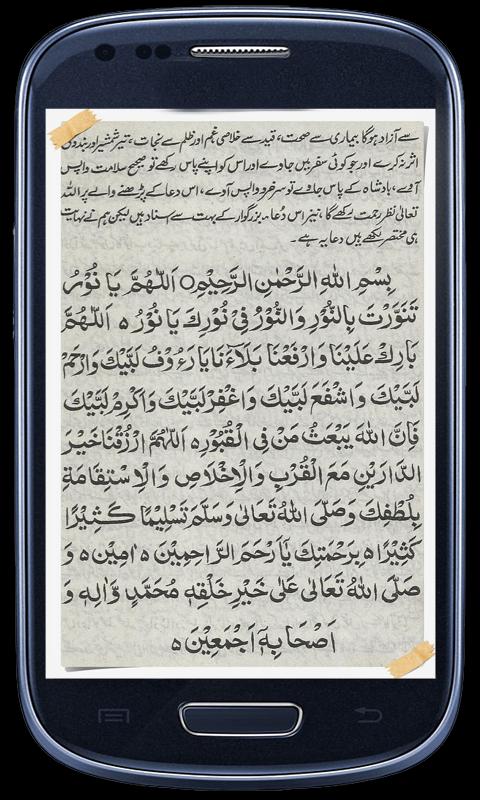 سے آزاد ہوگا بیماری سے صحت، قید سے خلاصی غم اور ظلم سے نجات، تیر شمشیر اور بندوق
اثر نہ کرے اور جو کوئی سفر میں جاوے اور اس کو اپنے پاس رکھے تو صحیح سلامت واپس
آوے، بادشاہ کے پاس جاوے تو سرخرو واپس آوے، اس دعا کے پڑھنے والے پر اللہ
تعالیٰ نظر رحمت رکھے گا، نیز اس دُعائے بزرگوار کے بہت سے اسناد ہیں لیکن ہم نے نہایت
ہی مختصر لکھے ہیں دعا یہ ہے۔
بِسْمِ اللهِ الرَّحْمٰنِ الرَّحِيْمِ ۝ اَللّٰهُمَّ يَا نُوْرُ
تَنَوَّرْتَ بِالنُّوْرِ وَالنُّوْرُ فِيْ نُوْرِكَ يَا نُوْرُ ہ اَللّٰهُمَّ
بَارِكْ عَلَيْنَا وَارْفَعْنَا بَلَآءَنَا يَا رَءُوْفُ لَبَّيْكَ وَارْحَمْ
لَبَّيْكَ وَاشْفَعَ لَبَّيْكَ وَاغْفِرْ لَبَّيْكَ وَاكْرِمْ لَبَّيْكَ
فَاِنَّ اللهَ يَبْعَثُ مَنْ فِى الْقُبُوْرِہ اَللّٰهُمَّ ارْزُقْنَا خَيْرَ
الدَّارَيْنِ مَعَ الْقُرْبِ وَالْاِخْلَاصِ وَالْاِسْتِقَامَةِ
بِلُطْفِكَ وَصَلَّى اللهُ تَعَالٰى وَسَلَّمَ تَسْلِيْمًا كَثِيْرًا
كَثِيْرًا ہ بِرَحْمَتِكَ يَآ اَرْحَمَ الرَّاحِمِيْنَ ہ اٰمِيْن ہ وَ
صَلَّى اللهُ تَعَالٰى عَلٰى خَيْرِ خَلْقِهٖ مُحَمَّدٍ وَّاٰلِهٖ وَ
اَصْحَابِهٖٓ اَجْمَعِيْنَ ہ